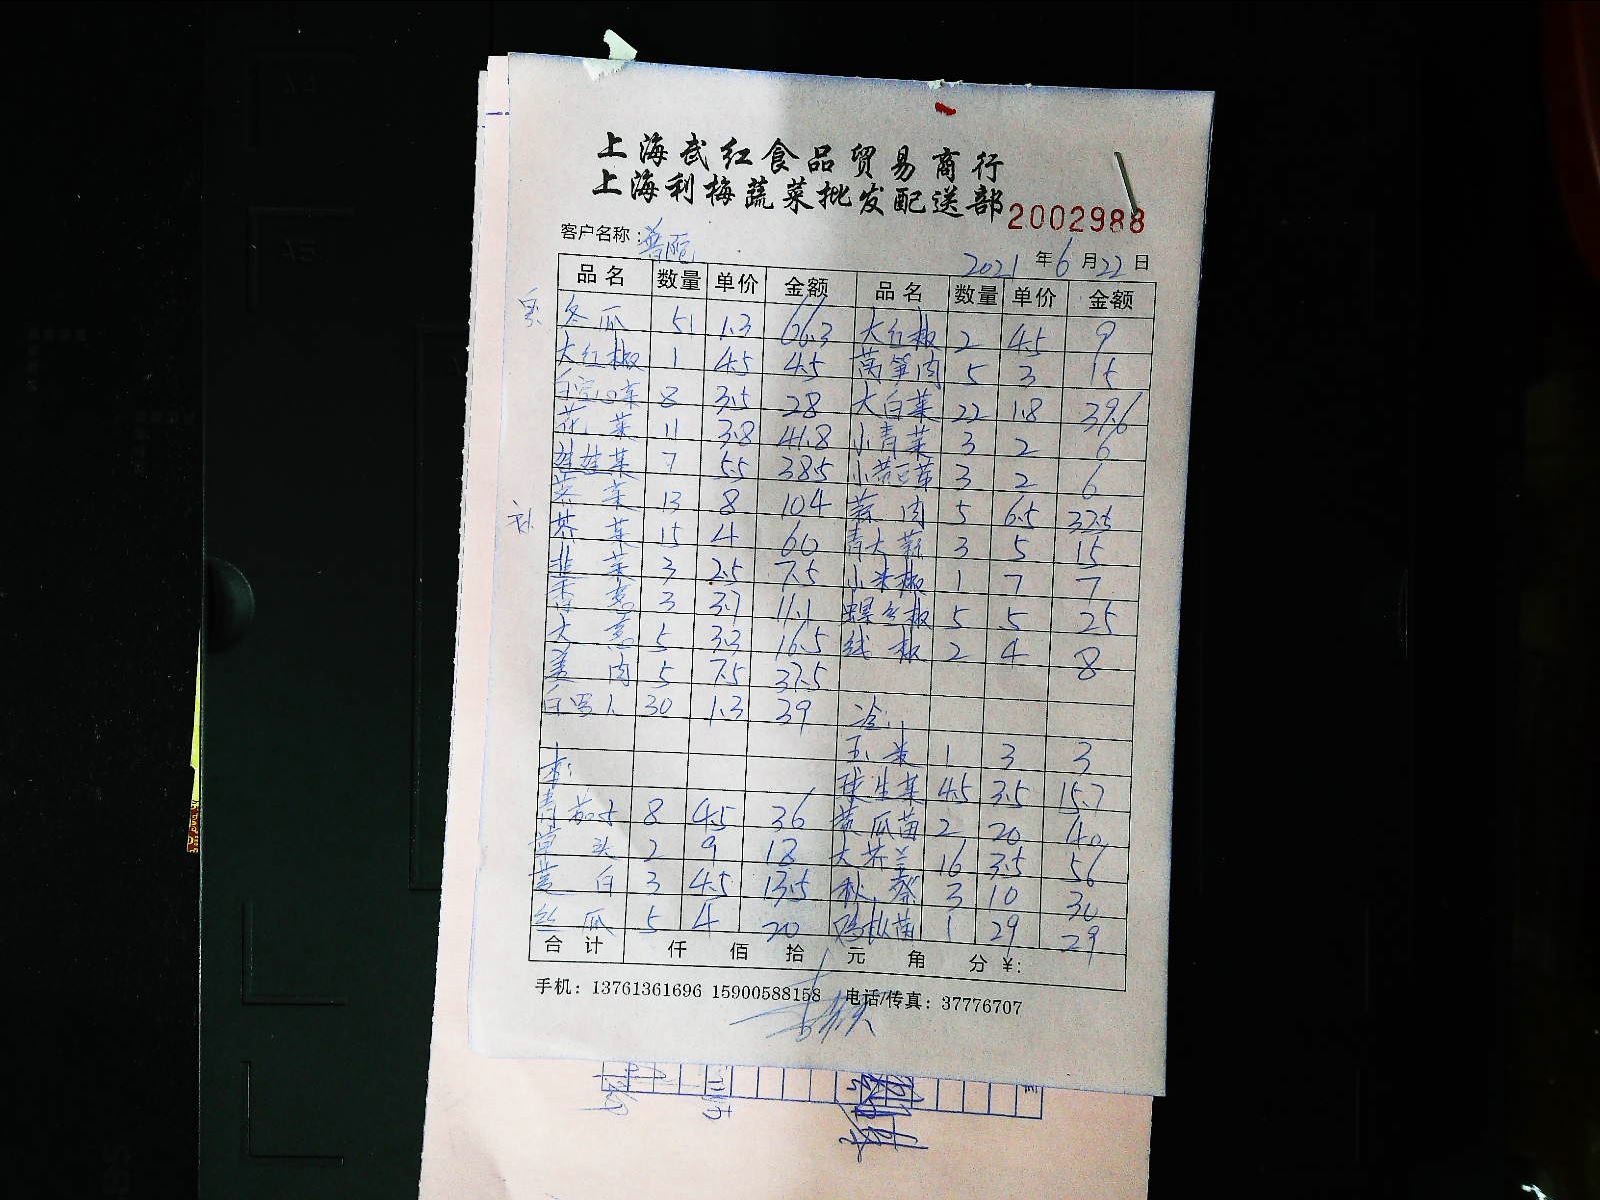 上海武红食品贸易商行
上海利梅蔬菜批发配送部 2002988
客户名称：普陀 2021年6月22日
品名 数量 单价 金额 品名 数量 单价 金额
冬瓜 51 1.3 66.3 大红椒 2 4.5 9
大红椒 1 4.5 4.5 莴笋肉 5 3 15
8 3.5 28 大白菜 22 1.8 39.6
花菜 11 3.8 41.8 小青菜 3 2 6
娃娃菜 7 5.5 38.5 3 2 6
菜 13 8 104 蒜肉 5 6.5 32.5
芥菜 15 4 60 青大蒜 3 5 15
韭菜 3 2.5 7.5 小米椒 1 7 7
香葱 3 3.7 11.1 螺丝椒 5 5 25
大葱 5 3.3 16.5 线椒 2 4 8
姜肉 5 7.5 37.5
白罗卜 30 1.3 39
玉米 1 3 3
球生菜 4.5 3.5 15.7
青茄子 8 4.5 36 黄瓜苗 2 20 40
草头 2 9 18 大芥兰 16 3.5 56
茭白 3 4.5 13.5 秋葵 3 10 30
丝瓜 5 4 20 鸡枞菌 1 29 29
合计 仟 佰 拾 元 角 分 ¥:
手机：13761361696 15900588158 电话/传真：37776707